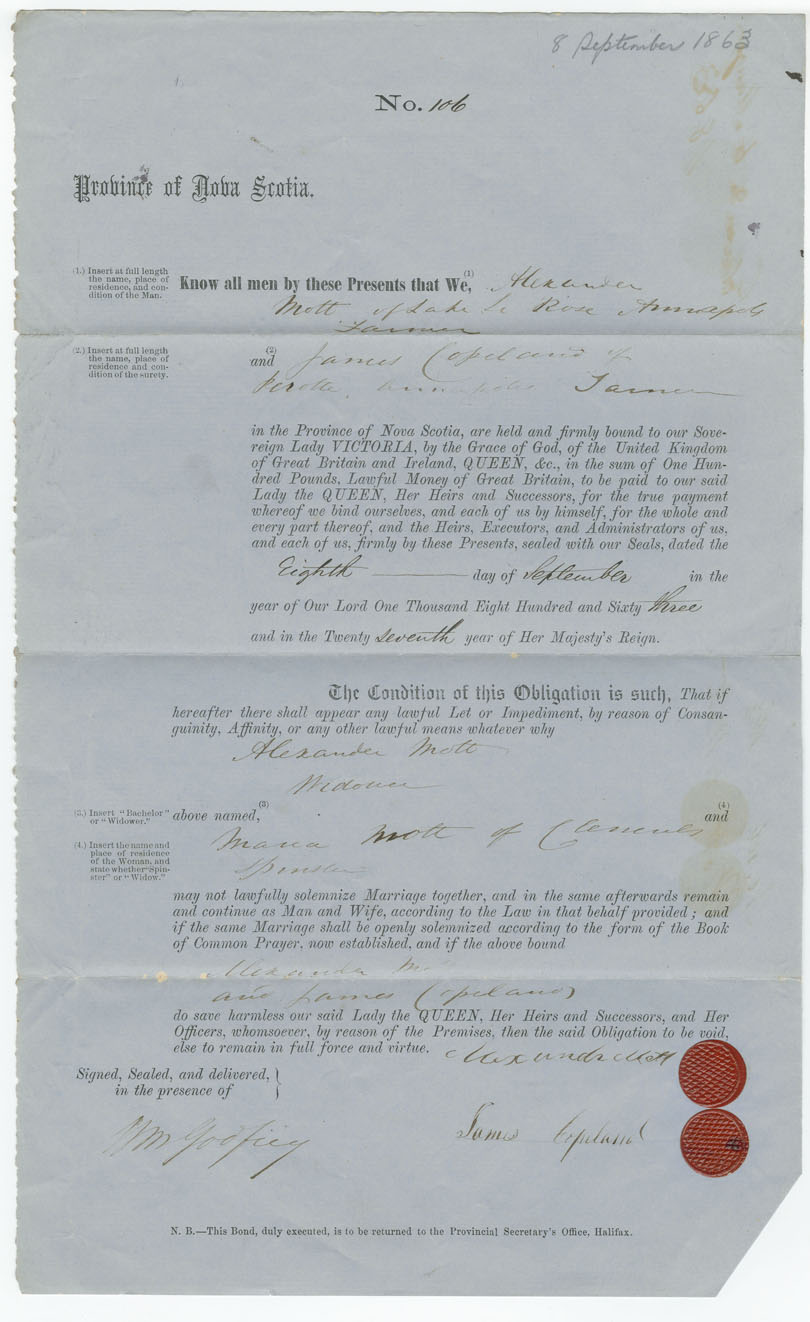 8 September 1863
No. 106
Province of Nova Scotia.
(1.) Insert at full length
the name, place of
residence, and con-
dition of the Man.
Know all men by these Presents that We, (1) Alexander
Mott of Lake Le Rose Annapolis
Farmer
(2.) Insert at full length
the name, place of
residence and con-
dition of the surety.
(2)
and James Copeland of
Perotte, Annapolis Farmer
in the Province of Nova Scotia, are held and firmly bound to our Sove-
reign Lady VICTORIA, by the Grace of God, of the United Kingdom
of Great Britain and Ireland, QUEEN, &c., in the sum of One Hun-
dred Pounds, Lawful Money of Great Britain, to be paid to our said
Lady the QUEEN, Her Heirs and Successors, for the true payment
whereof we bind ourselves, and each of us by himself, for the whole and
every part thereof, and the Heirs, Executors, and Administrators of us,
and each of us, firmly by these Presents, sealed with our Seals, dated the
Eighth day of September in the
year of Our Lord One Thousand Eight Hundred and Sixty three
and in the Twenty seventh year of Her Majesty's Reign.
The Condition of this Obligation is such, That if
hereafter there shall appear any lawful Let or Impediment, by reason of Consan-
guinity, Affinity, or any other lawful means whatever why
Alexander Mott
Widower
(3.) Insert "Bachelor"
or "Widower."
above named, (3) (4) and
(4.) Insert the name and
place of residence
of the Woman, and
state whether "Spin-
ster" or "Widow."
Maria Mott of Clements
Spinster
may not lawfully solemnize Marriage together, and in the same afterwards remain
and continue as Man and Wife, according to the Law in that behalf provided; and
if the same Marriage shall be openly solemnized according to the form of the Book
of Common Prayer, now established, and if the above bound
Alexander Mott
and James Copeland
do save harmless our said Lady the QUEEN, Her Heirs and Successors, and Her
Officers, whomsoever, by reason of the Premises, then the said Obligation to be void,
else to remain in full force and virtue.
Alexandr Mott
Signed, Sealed, and delivered,
in the presence of
James Copeland
Wm Godfrey
N. B.—This Bond, duly executed, is to be returned to the Provincial Secretary's Office, Halifax.